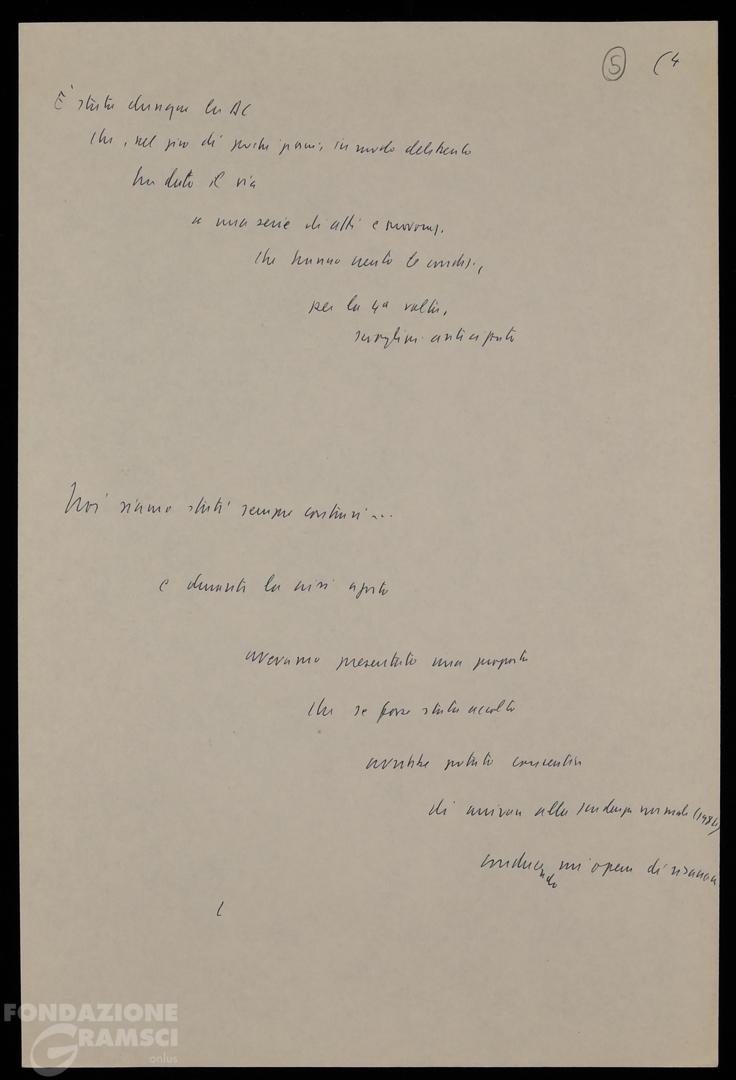 5 (4
È stata dunque la DC
che, nel giro di pochi giorni, in modo deliberato
ha dato il via
a una serie di atti e
che hanno creato le condiz.,
per la 4ª volta,
anticipato
Noi siamo stati sempre contrari...
e durante la crisi agosto
avevamo presentato una proposta
che se fosse stata accolta
avrebbe potuto consentire
di arrivare alla scadenza normale (1984)
conducendo un'opera di
FONDAZIONE
GRAMSCI
onlus